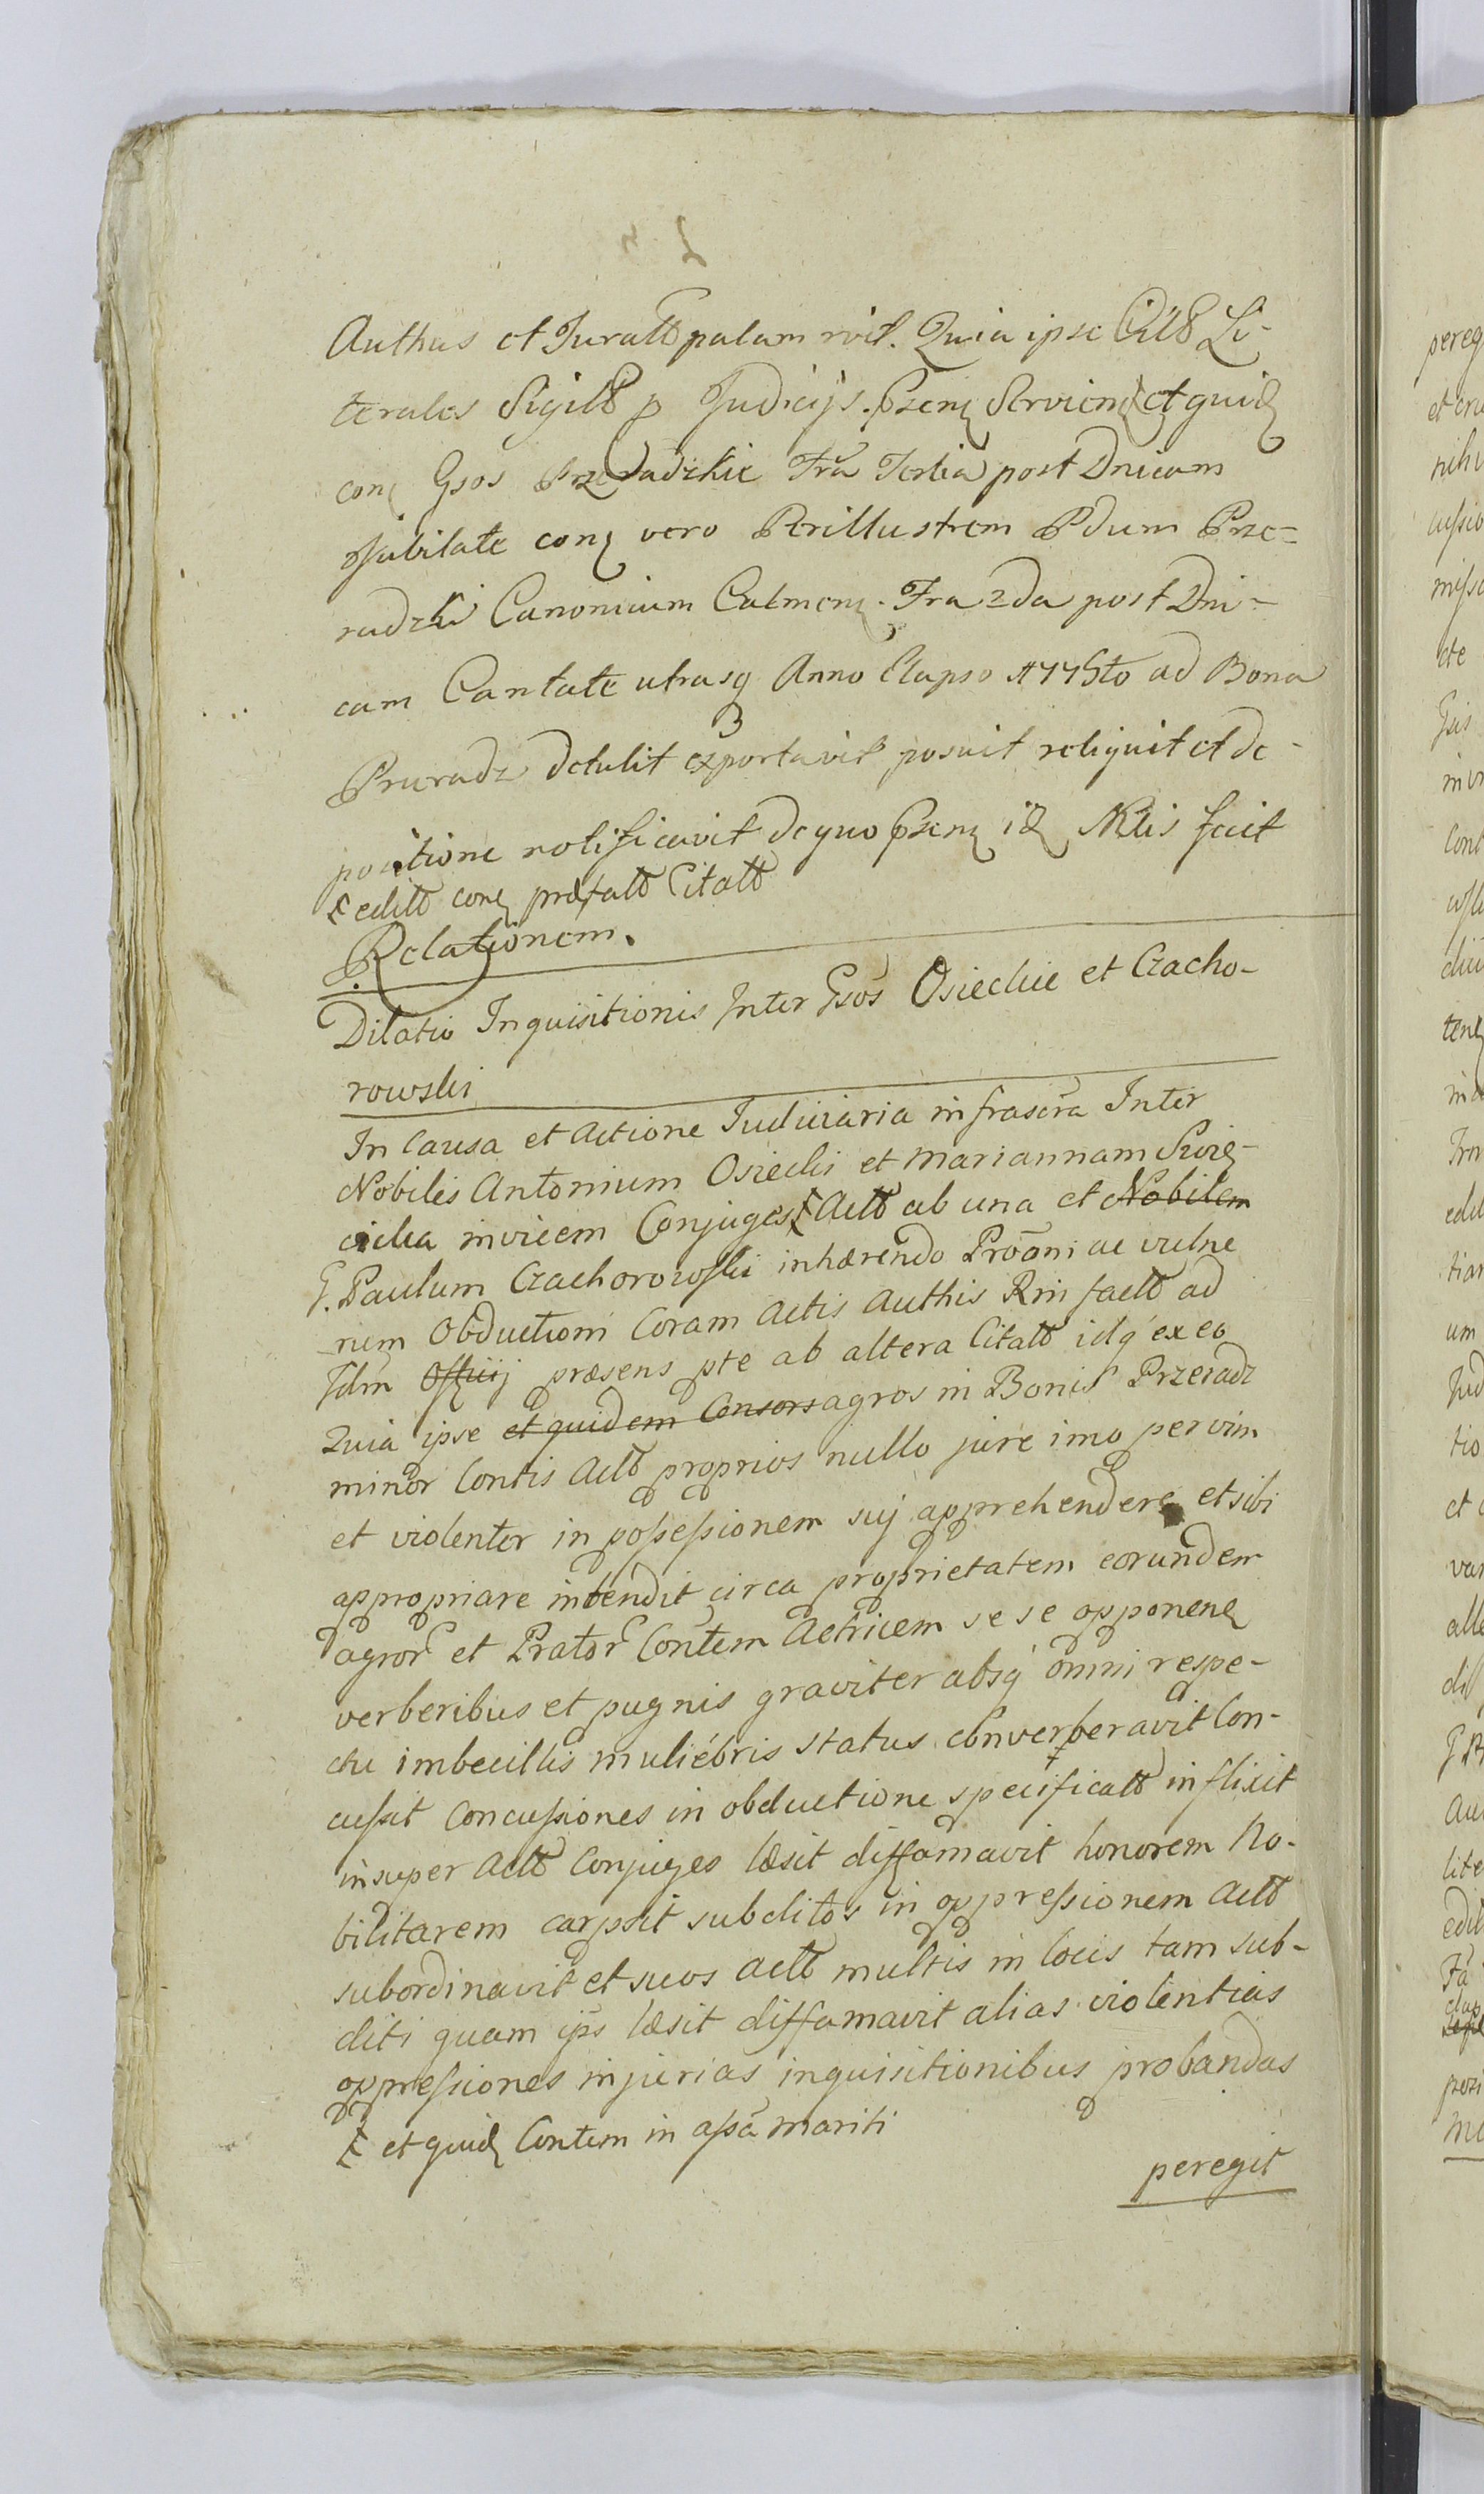 Authus et Juratt palam rvit. Quia ipse Citt Li-
terales Sigill p Judicijs. Pzens Serviens et quid
con Gsos Przeradzkie Fra Tertia post Dnicam
Jubilate con vero Perillustrem Pdum Prze-
radzki Canonicum Culmens. Fra 2da post Dni-
cam Cantate utrasq Anno Elapso 1775to ad Bona
Pruradz detulit exportavit posuit reliquit et de-
positione notificavit de quo Pzens id Nblis fecit
editt con præfatt Citatt
Relationem.
Dilatio Inquisitionis Inter Gsos Osieckie et Czacho-
rowski
In Causa et Actione Judiciaria infrascra Inter
Nobiles Antonium Osiecki et Mariannam Swie-
cicka invicem Conjuges Actt ab una et Nobilem
G. Paulum Czachorowski inhærendo Proõni ac vulne
rum Obductioni Coram Actis Authis Rni factt ad
Jdm Officij præsens pte ab altera Citatt idq ex eo
Quia ipse et quidem Consors agros in Bonis Przeradz
minor Contis Actt proprios nullo jure imo per vim
et violenter in possessionem suj apprehendere et sibi
appropriare intendit circa proprietatem eorundem
agror et Prator Contem Actricem se se opponens
verberibus et pugnis graviter absq omni respe-
ctu imbecillis muliebris status converberavit Con-
cussit Concussiones in obductione specificatt inflixit
insuper Actt Conjuges læsit diffamavit honorem No-
bilitarem carpsit subditos in oppressionem Actt
subordinavit et suos Actt multis in locis tam sub-
diti quam ips læsit diffamavit alias violentias
oppressiones injurias inquisitionibus probandas
et quid Contem in assa mariti
peregit